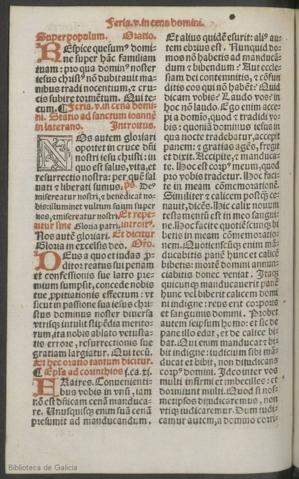 Feria.v.in cena domini.
Super populum. Oratio.
REspice quesumꝰ domi-
ne super hāc familiam
tuam: pro qua dominꝰ noster
iesus christꝰ nō dubitauit ma-
nibus tradi nocentium, & cru-
cis subire tormētum. Qui te-
cum. Feria.v.in cena domi-
ni. Statio ad sanctum ioannē
in laterano. Introitus.
NOs autem gloriari
oportet in cruce dn̄i
nostri iesu christi: in
quo est salus, vita, et
resurrectio nostra: per quē sal
uati & liberati sumus. ps̄. Deꝰ
misereatur nostri, & benedicat no
bis: illuminet vultum suum super
nos, & misereatur nostri. Et repe-
titur sine Gloria patri, introitꝰ.
Nos autē gloriari. Et dicitur
Gloria in excelsis deo. Or̄o.
DEus a quo et iudas p̄-
ditor reatus sui penam
et confessionis sue latro pre-
mium sumpsit, concede nobis
tue ppitiationis effectum: vt
sicut in passione sua iesus chri
stus dominus noster diuersa
vtrisqꝫ intulit stipēdia merito-
rum, ita nobis ablato vetusta-
tis errore, resurrectionis sue
gratiam largiatur. Qui tecū.
Et hec oratio tantum dicitur.
Ep̄la ad corinthios .j. ca. xi.
FRatres. Conuenienti-
bus vobis in vnū, iam
nō est dn̄icam cenā manduca-
re. Unusquisqꝫ enim suā cenā
presumit ad manducandum,
Et alius quidē esurit: aliꝰ au-
tem ebrius est. Nunquid do-
mos nō habetis ad manducā-
dum & bibendum? Aut eccle-
siam dei contemnitis, & cōfun
ditis eos qui nō habēt? Quid
dicam vobis? Laudo vos: in
hoc nō laudo. Ego enim acce-
pi a dn̄o, quod & tradidi vo-
bis: quoniā dominus iesus in
qua nocte tradebatur, accepit
panem: & gratias agēs, fregit
et dixit. Accipite, & manduca-
te. Hoc est corpꝰ meum, quod
pro vobis tradetur. Hoc faci-
te in meam cōmemorationē.
Similiter & calicem postꝗ̄ ce-
nauit, dicēs. Hic calix nouum
testamentū est in meo sangui-
ne. Hoc facite quotiēscunqꝫ bi
betis in meam cōmemoratio-
nem. Quotiēscūqꝫ enim mā-
ducabitis panē hunc et calicē
bibetis: mortē domini annun-
ciabitis donec veniat. Itaqꝫ
quicunqꝫ manducauerit panē
hunc vel biberit calicem domi
ni indigne: reus erit corporis
et sanguinis domini. Probet
autem seipsum homo: et sic de
pane illo edat, et de calice bi-
bat. Qui enim manducat & bi-
bit indigne: iudicium sibi mā-
ducat et bibit, non dijudicans
corpꝰ domini. Ideo inter vos
multi infirmi et imbecilles: et
dormiunt multi. Quod si nos-
metipsos dijudicaremus, non
vtiqꝫ iudicaremur. Dum iudi-
camur autem, a domino corri-
Biblioteca de Galicia